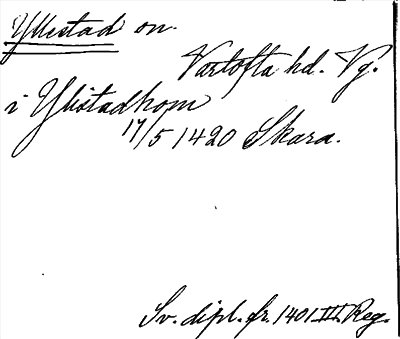 Yllestad on.
Vartofta hd. Vg.
i Ylistadhom
17/5 1420 Skara.
Sv. dipl. fr. 1401 III. Reg.